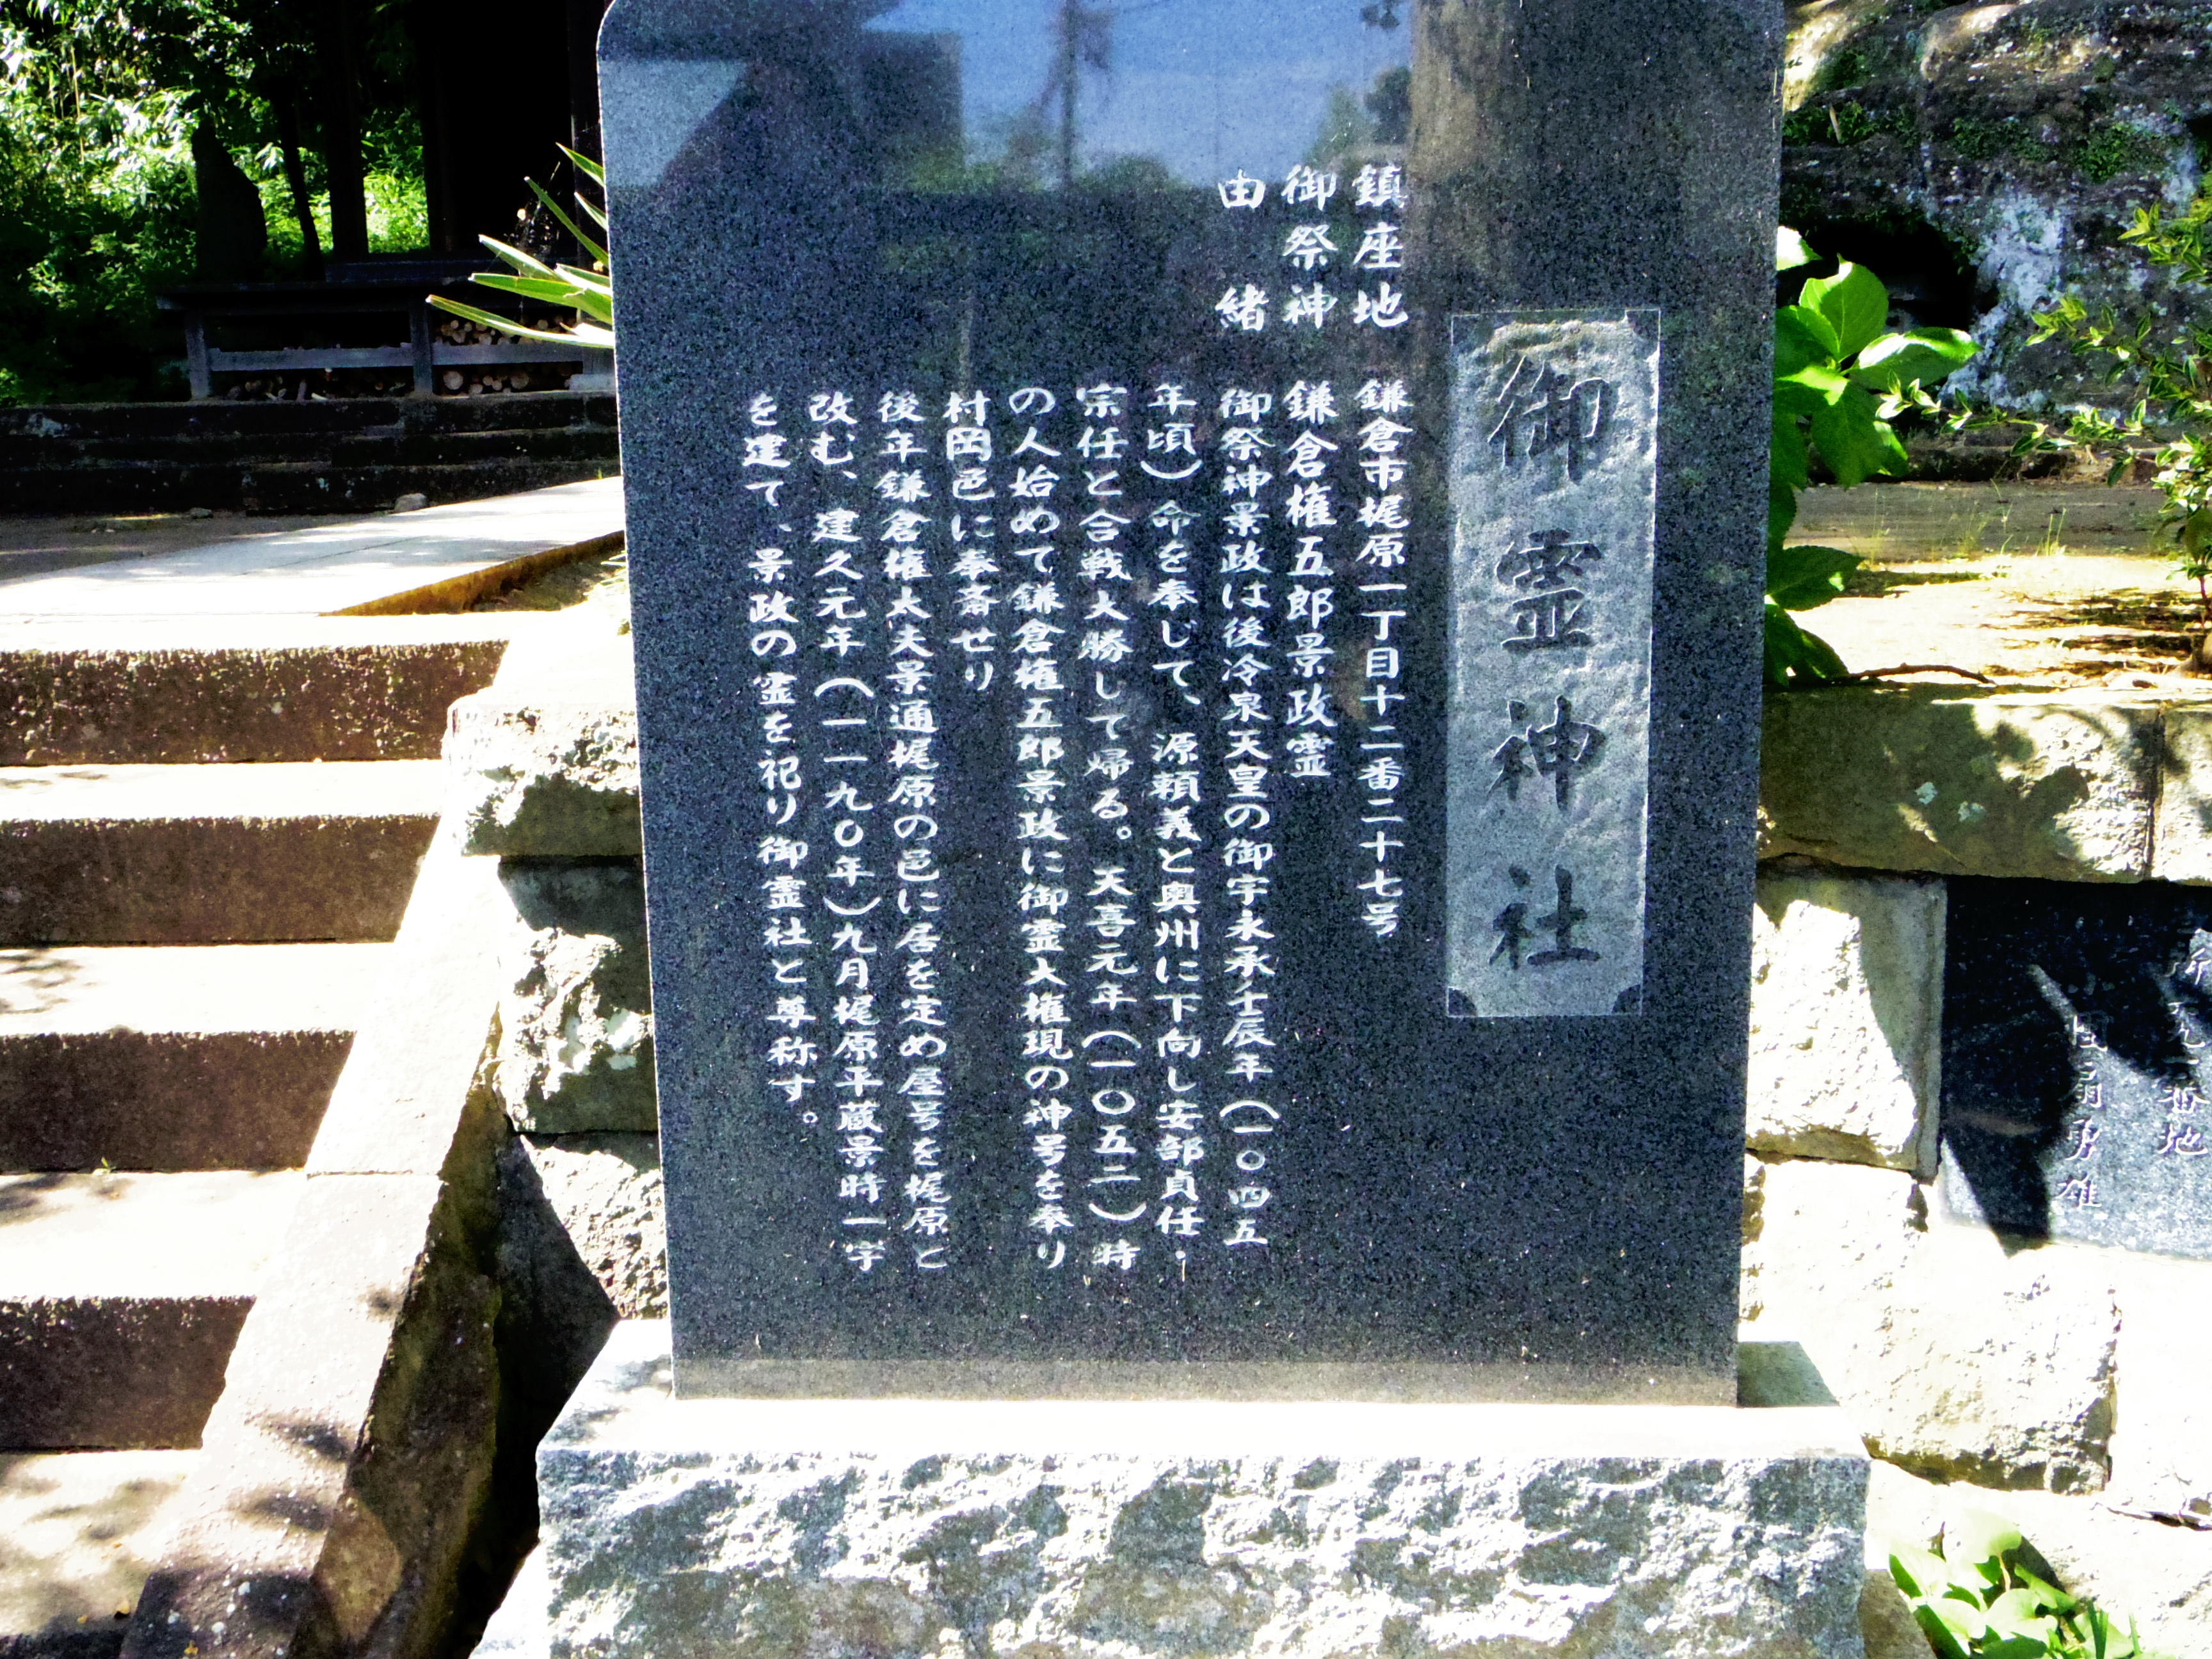 御霊神社
鎮座地　鎌倉市梶原一丁目十二番二十七号
御祭神　鎌倉権五郎景政霊
由　緒　御祭神景政は後冷泉天皇の御宇永承壬辰年(一〇四五
年頃)命を奉じて、源頼義と奥州に下向し安部貞任・
宗任と合戦大勝して帰る。天喜元年(一〇五二)時
の人始めて鎌倉権五郎景政に御霊大権現の神号を奉り
村岡邑に奉斎せり
後年鎌倉権太夫景通梶原の邑に居を定め屋号を梶原と
改む、建久元年(一一九〇年)九月梶原平蔵景時一宇
を建て、景政の霊を祀り御霊社と尊称す。
番地
勇雄